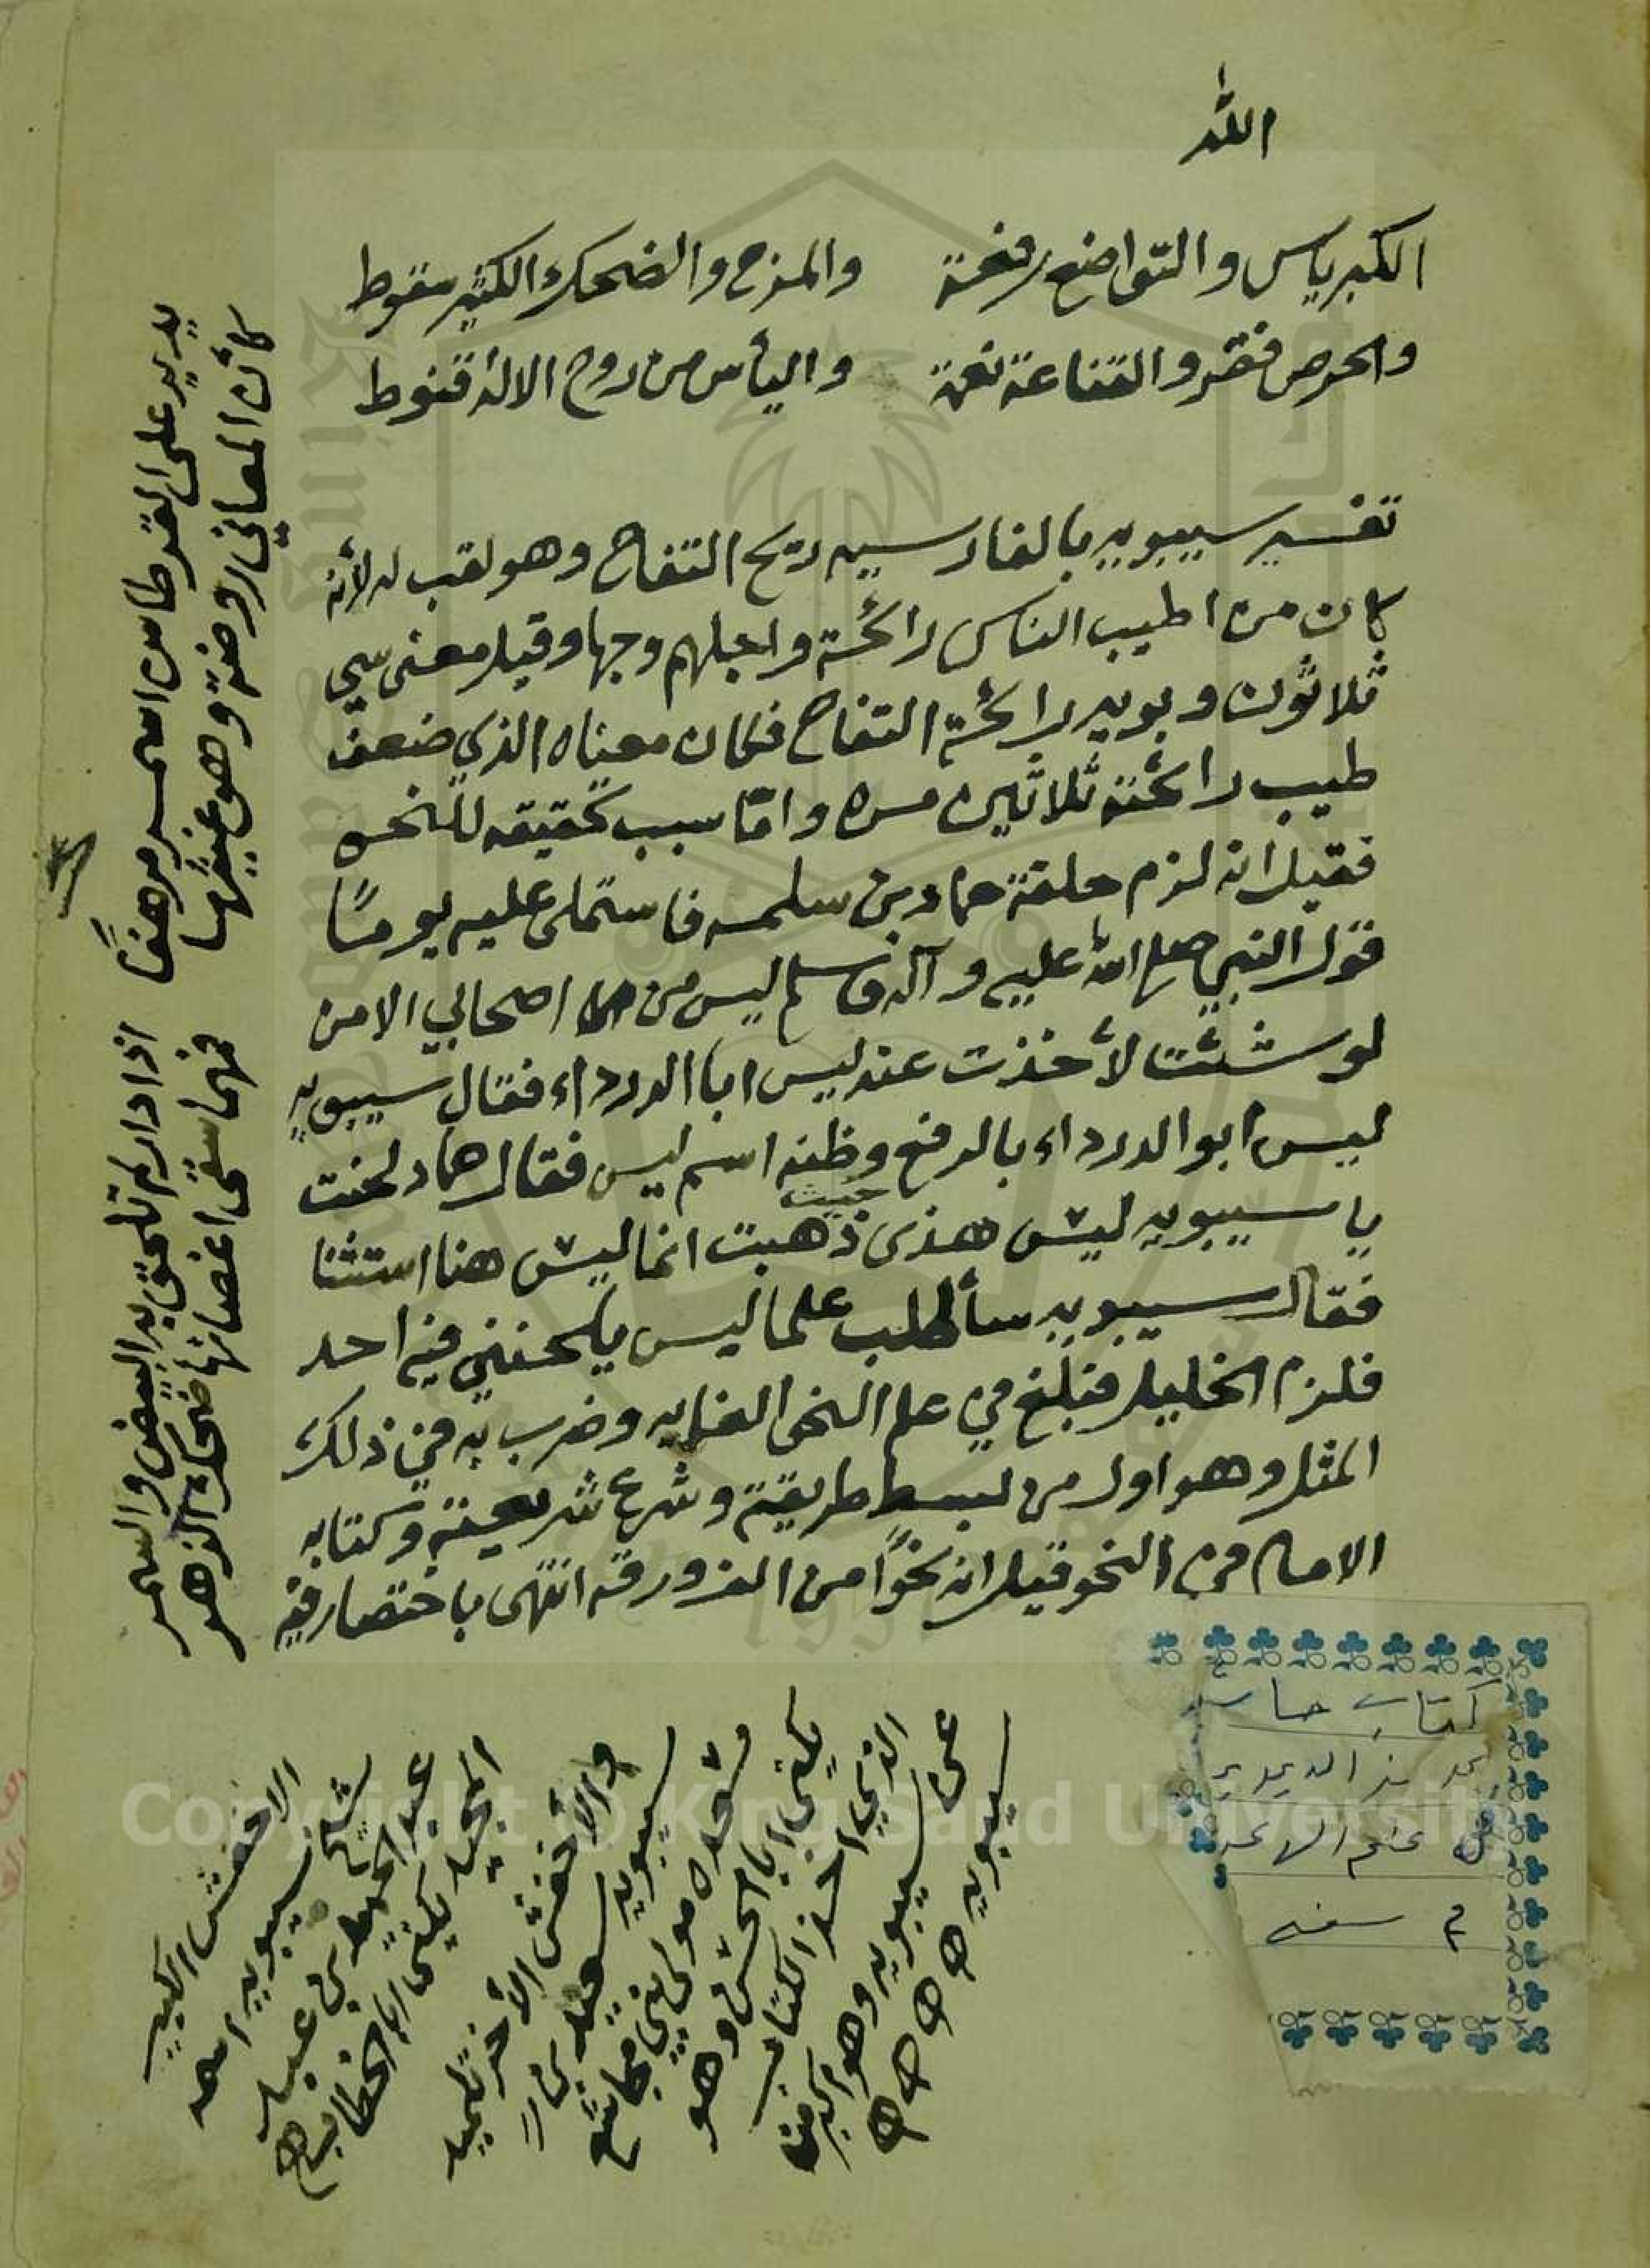 الله
الكبر ياس والتواضع رفعة والمزح والضحك الكثير سقوط
والحرص فقر والقناعة نعمة واليأس من روح الاله قنوط
تفسير سيبويه بالفارسيه ريح التفاح وهو لقب له لأنه
كان من اطيب الناس رائحة واجملهم وجها وقيل معنى سي
ثلاثون وبويه رائحة التفاح فكان معناه الذي ضعف
طيب رائحته ثلاثين مره وامّا سبب تحقيقه للنحو
فقيل انه لزم حلقة حماد بن سلمه فاستملى عليه يومًا
قول النبي صلى الله عليه وآله وسلم ليس من اصحابي الا من
لو شئت لأخذت عنه ليس ابا الدرداء فقال سيبويه
ليس ابو الدرداء بالرفع وظنه اسم ليس فقال حماد لحنت
يا سيبويه ليس هذى حيث ذهبت انما ليس هنا استثنا
فقال سيبويه سأطلب علما ليس يلحنني فيه احد
فلزم الخليل فبلغ في علم النحو الغايه وضرب به في ذلك
المثل وهو اول من بسط طريقته وشرع شريعته وكتابه
الامام في النحو قيل انه نحوًا من الف ورقه انتهى باختصار فيه
يدير على القرطاس اسمر مرهفًا اذا دار لم تلحق به البيض والسمر
كأن المعاني روضة وهو غيثها فمهما سقى اغصانها ضحك الزهر
الاخفش الكبير
شيخ سيبويه اسمه
عبد الحميد بن عبد
المجيد يكنى ابا الخطاب اه
والأخفش الأخر تلميذ
سيبويه سعيد بن
مسعده مولى بني مجاشع
يكنى ابا الحسن وهو
الذي اخذ الكتاب
عن سيبويه وهو اكبر من
سيبويه اه
كتاب
م سنه
Copyright © King Saud University
1957